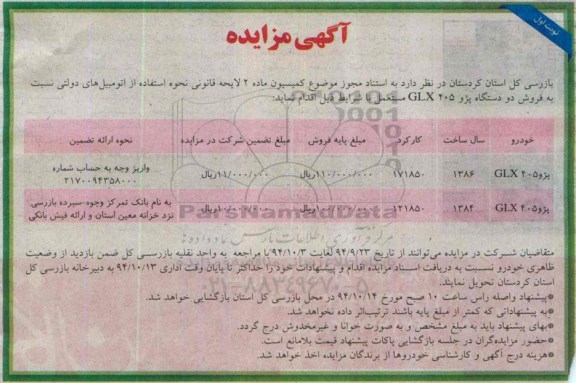 نوبت اول
آگهی مزایده
بازرسی کل استان کردستان در نظر دارد به استناد مجوز موضوع کمیسیون ماده ۲ لایحه قانونی نحوه استفاده از اتومبیل‌های دولتی نسبت
به فروش دو دستگاه پژو ۴۰۵ GLX مستعمل با شرایط ذیل اقدام نماید:
خودرو سال ساخت کارکرد مبلغ پایه فروش مبلغ تضمین شرکت در مزایده نحوه ارائه تضمین
پژو۴۰۵ GLX ۱۳۸۶ ۱۷۱۸۵۰ ۱۱۰/۰۰۰/۰۰۰ریال ۱۱/۰۰۰/۰۰۰ریال واریز وجه به حساب شماره
۲۱۷۰۰۹۴۳۵۸۰۰۰
پژو۴۰۵ GLX ۱۳۸۴ ۱۲۱۸۵۰ ۱۰۰/۰۰۰/۰۰۰ریال ۱۰/۰۰۰/۰۰۰ریال به نام بانک تمرکز وجوه-سپرده بازرسی
نزد خزانه معین استان و ارائه فیش بانکی
ParsNamadData
مرکز فرآوری اطلاعات پارس نماد داده‌ها
۰۲۱-۸۸۳۴۹۶۷۰-۵
متقاضیان شرکت در مزایده می‌توانند از تاریخ ۹۴/۹/۲۳ لغایت ۹۴/۱۰/۳ با مراجعه به واحد نقلیه بازرسی کل ضمن بازدید از وضعیت
ظاهری خودرو نسبت به دریافت اسناد مزایده اقدام و پیشنهادات خود را حداکثر تا پایان وقت اداری ۹۴/۱۰/۱۳ به دبیرخانه بازرسی کل
استان کردستان تحویل نمایند.
*پیشنهاد واصله راس ساعت ۱۰ صبح مورخ ۹۴/۱۰/۱۴ در محل بازرسی کل استان بازگشایی خواهد شد.
*به پیشنهاداتی که کمتر از مبلغ پایه باشند ترتیب‌اثر داده نخواهد شد.
*بهای پیشنهاد باید به مبلغ مشخص و به صورت خوانا و غیرمخدوش درج گردد.
*حضور مزایده‌گران در جلسه بازگشایی پاکات پیشنهاد قیمت بلامانع است.
*هزینه درج آگهی و کارشناسی خودروها از برندگان مزایده اخذ خواهد شد.